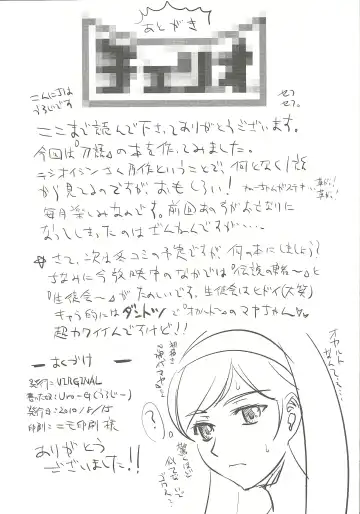 あとがき
こんにちは
うろじです
ここまで読んで下さってありがとうございます。
今回は『刀語』の本を作ってみました。
ニシオイシンさん原作ということで、何となく1話
から見てるのですが、おもしろい!
毎月楽しみなんです。前回あのうがおざなりに
なってしまったのはざんねんですが・・・・
さて、次は冬コミの予定ですが、何の本にしましょう?
ちなみに今放映中のなかでは『伝説の勇〜』と
『生徒会〜』がたのしいです。生徒会はヒドイ(大笑)
キャラ的にはダントツで『オカルト〜』のマヤちゃん
超カワイイんですけど!!
― おくづけ ―
発行:VIRGINAL
書いた人:Uro-G(うろじー)
発行日:2010/8/15
印刷:三毛印刷 様
ありがとう
ございました!!
オカルト
なんて・・・
?